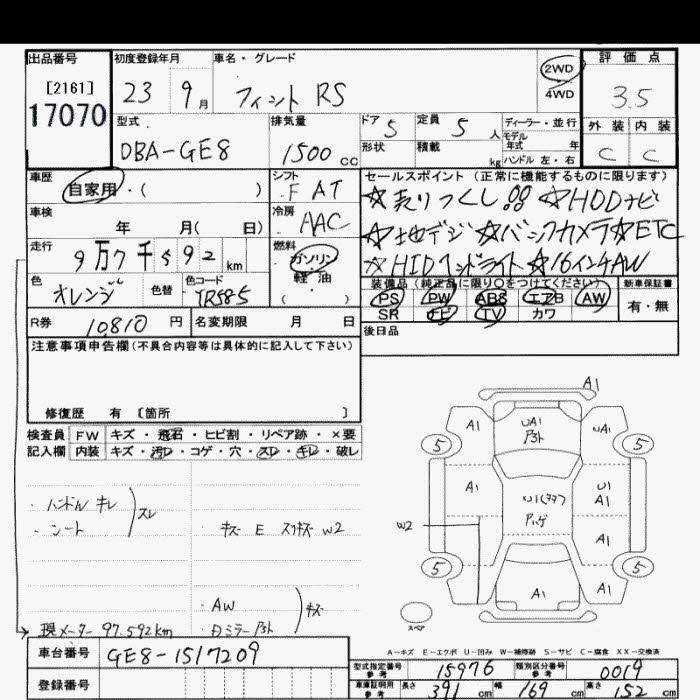 出品番号 初度登録年月 車名・グレード 2WD 評価点
[2161] 23 9月 フィット RS 4WD 3.5
17070
型式 排気量 ドア 5 定員 5人 ディーラー・並行 外装 内装
DBA-GE8 1500cc 形状 積載 kg モデル年式 年 C C
ハンドル 左・右
車歴 シフト セールスポイント (正常に機能するものに限ります)
自家用・( ) F AT ☆売りつくし!! ☆HDDナビ
車検 年 月( 日) 冷房 AAC ☆地デジ ☆バックカメラ☆ETC
走行 9万7千592km 燃料 ガソリン ☆HIDヘッドライト ☆16インチAW
軽油
( )
色 オレンジ 色替 色コード YR585 装備品 (純正品に限り○をつけてください) 新車保証書
PS PW ABS エアB AW 有・無
SR ナビ TV カワ
R券 10,810円 名変期限 月 日 後日品
注意事項申告欄(不具合内容等は具体的に記入して下さい)
修復歴 有 [箇所 ]
検査員 FW キズ・飛石・ヒビ割・リペア跡・×要
記入欄 内装 キズ・汚レ・コゲ・穴・スレ・キレ・破レ
A1
A1 UA1 UA1
5 5
A1 U1 U1
A1
・ハンドル キレ スレ
・シート
キズ E スリキズ W2
W2 ハゲ A1
5 5
A1 A1
・AW キズ
・ミラー
現メーター 97.592km スペア
A-キズ E-エクボ U-凹み W-補修跡 S-サビ C-腐食 XX-交換済
車台番号 GE8-1517209 型式指定番号 参考 15976 類別区分番号 参考 0019
登録番号 車庫証明用 参考 長さ 391cm 幅 169cm 高さ 152cm